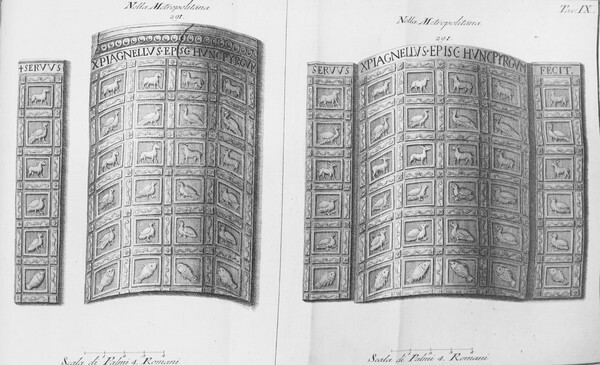 Nella Metropolitana
291.
SERVVS
XPIAGNELLVS·EPISC·HVNCPYRGVM
Scala di Palmi 4. Romani
Nella Metropolitana
291.
Tav. IX.
SERVVS
XPIAGNELLVS·EPISC·HVNCPYRGVM
FECIT.
Scala di Palmi 4. Romani